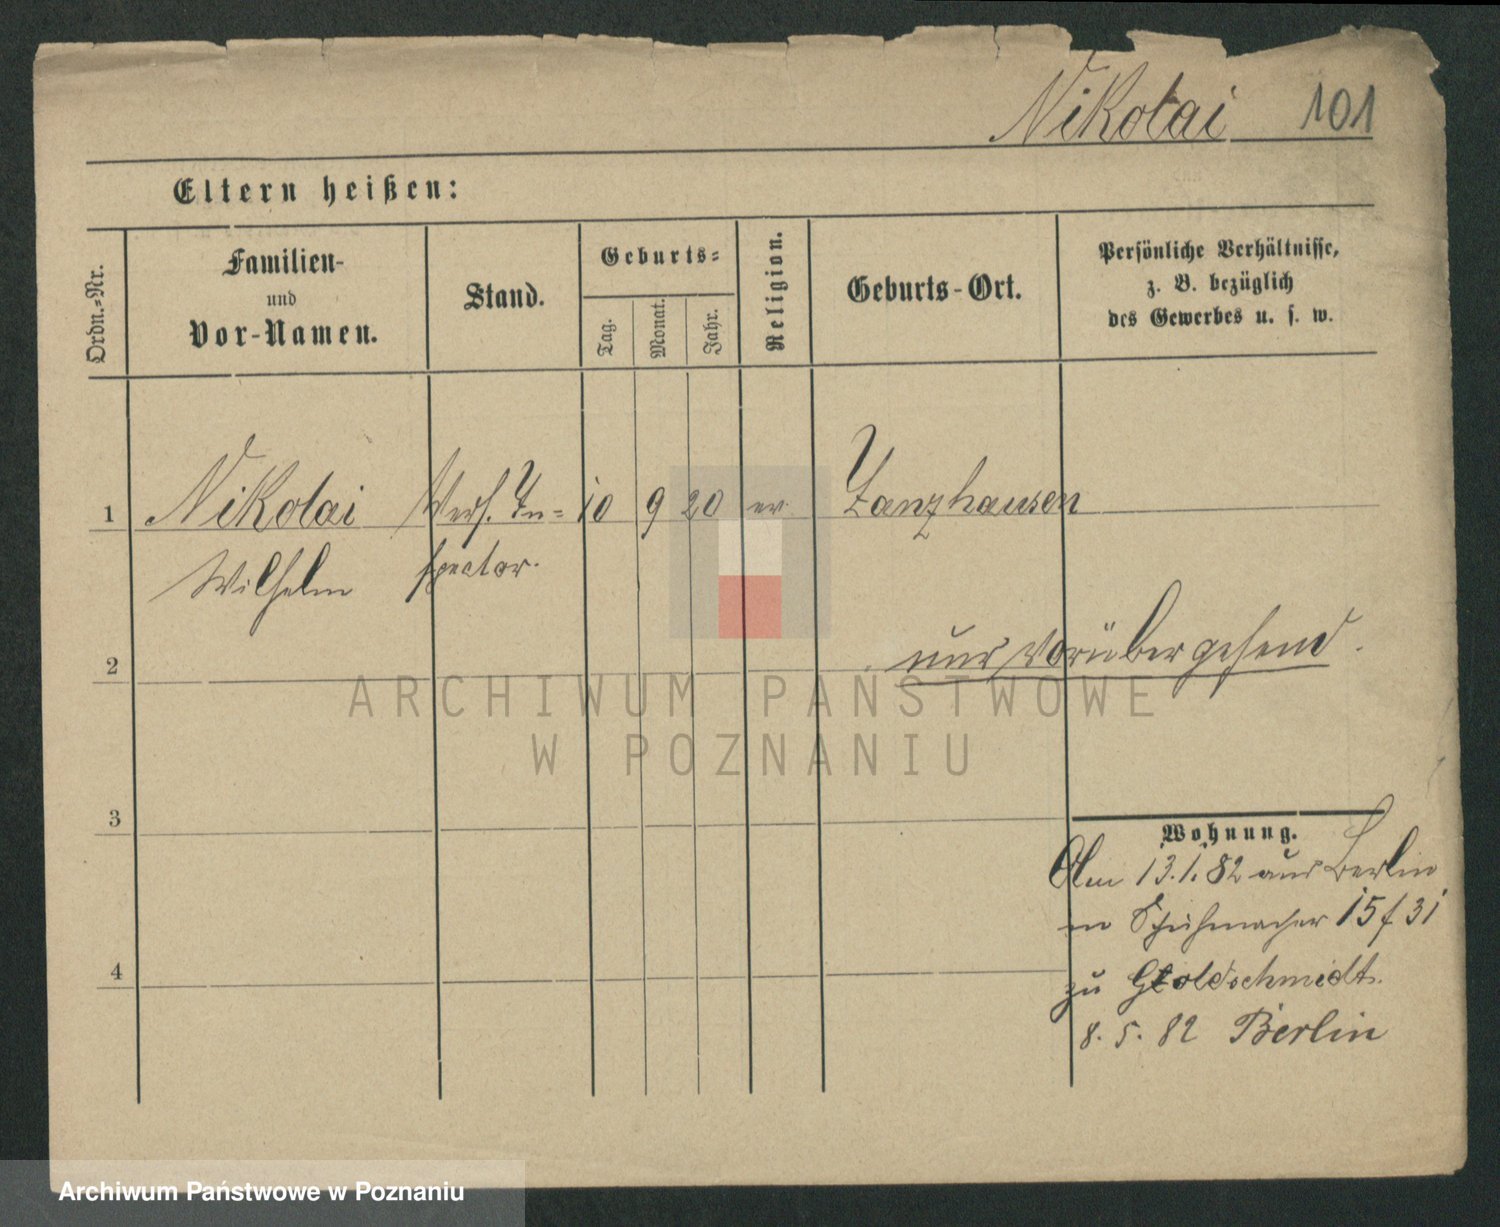 Nikolai 101
Eltern heißen:
Ordn.-Nr.
Familien-
und
Vor-Namen.
Stand.
Geburts-
Tag.
Monat.
Jahr.
Religion.
Geburts-Ort.
Persönliche Verhältnisse,
z. B. bezüglich
des Gewerbes u. s. w.
1 Nikolai Vers. In= 10 9 20 ev. Zanzhausen
Wilhelm spector.
2 nur vorübergehend.
ARCHIWUM PAŃSTWOWE
W POZNANIU
3
Wohnung.
Am 13.1.82 aus Berlin
in Schuhmacher 15/31
4
zu Goldschmidt.
8. 5. 82 Berlin
Archiwum Państwowe w Poznaniu